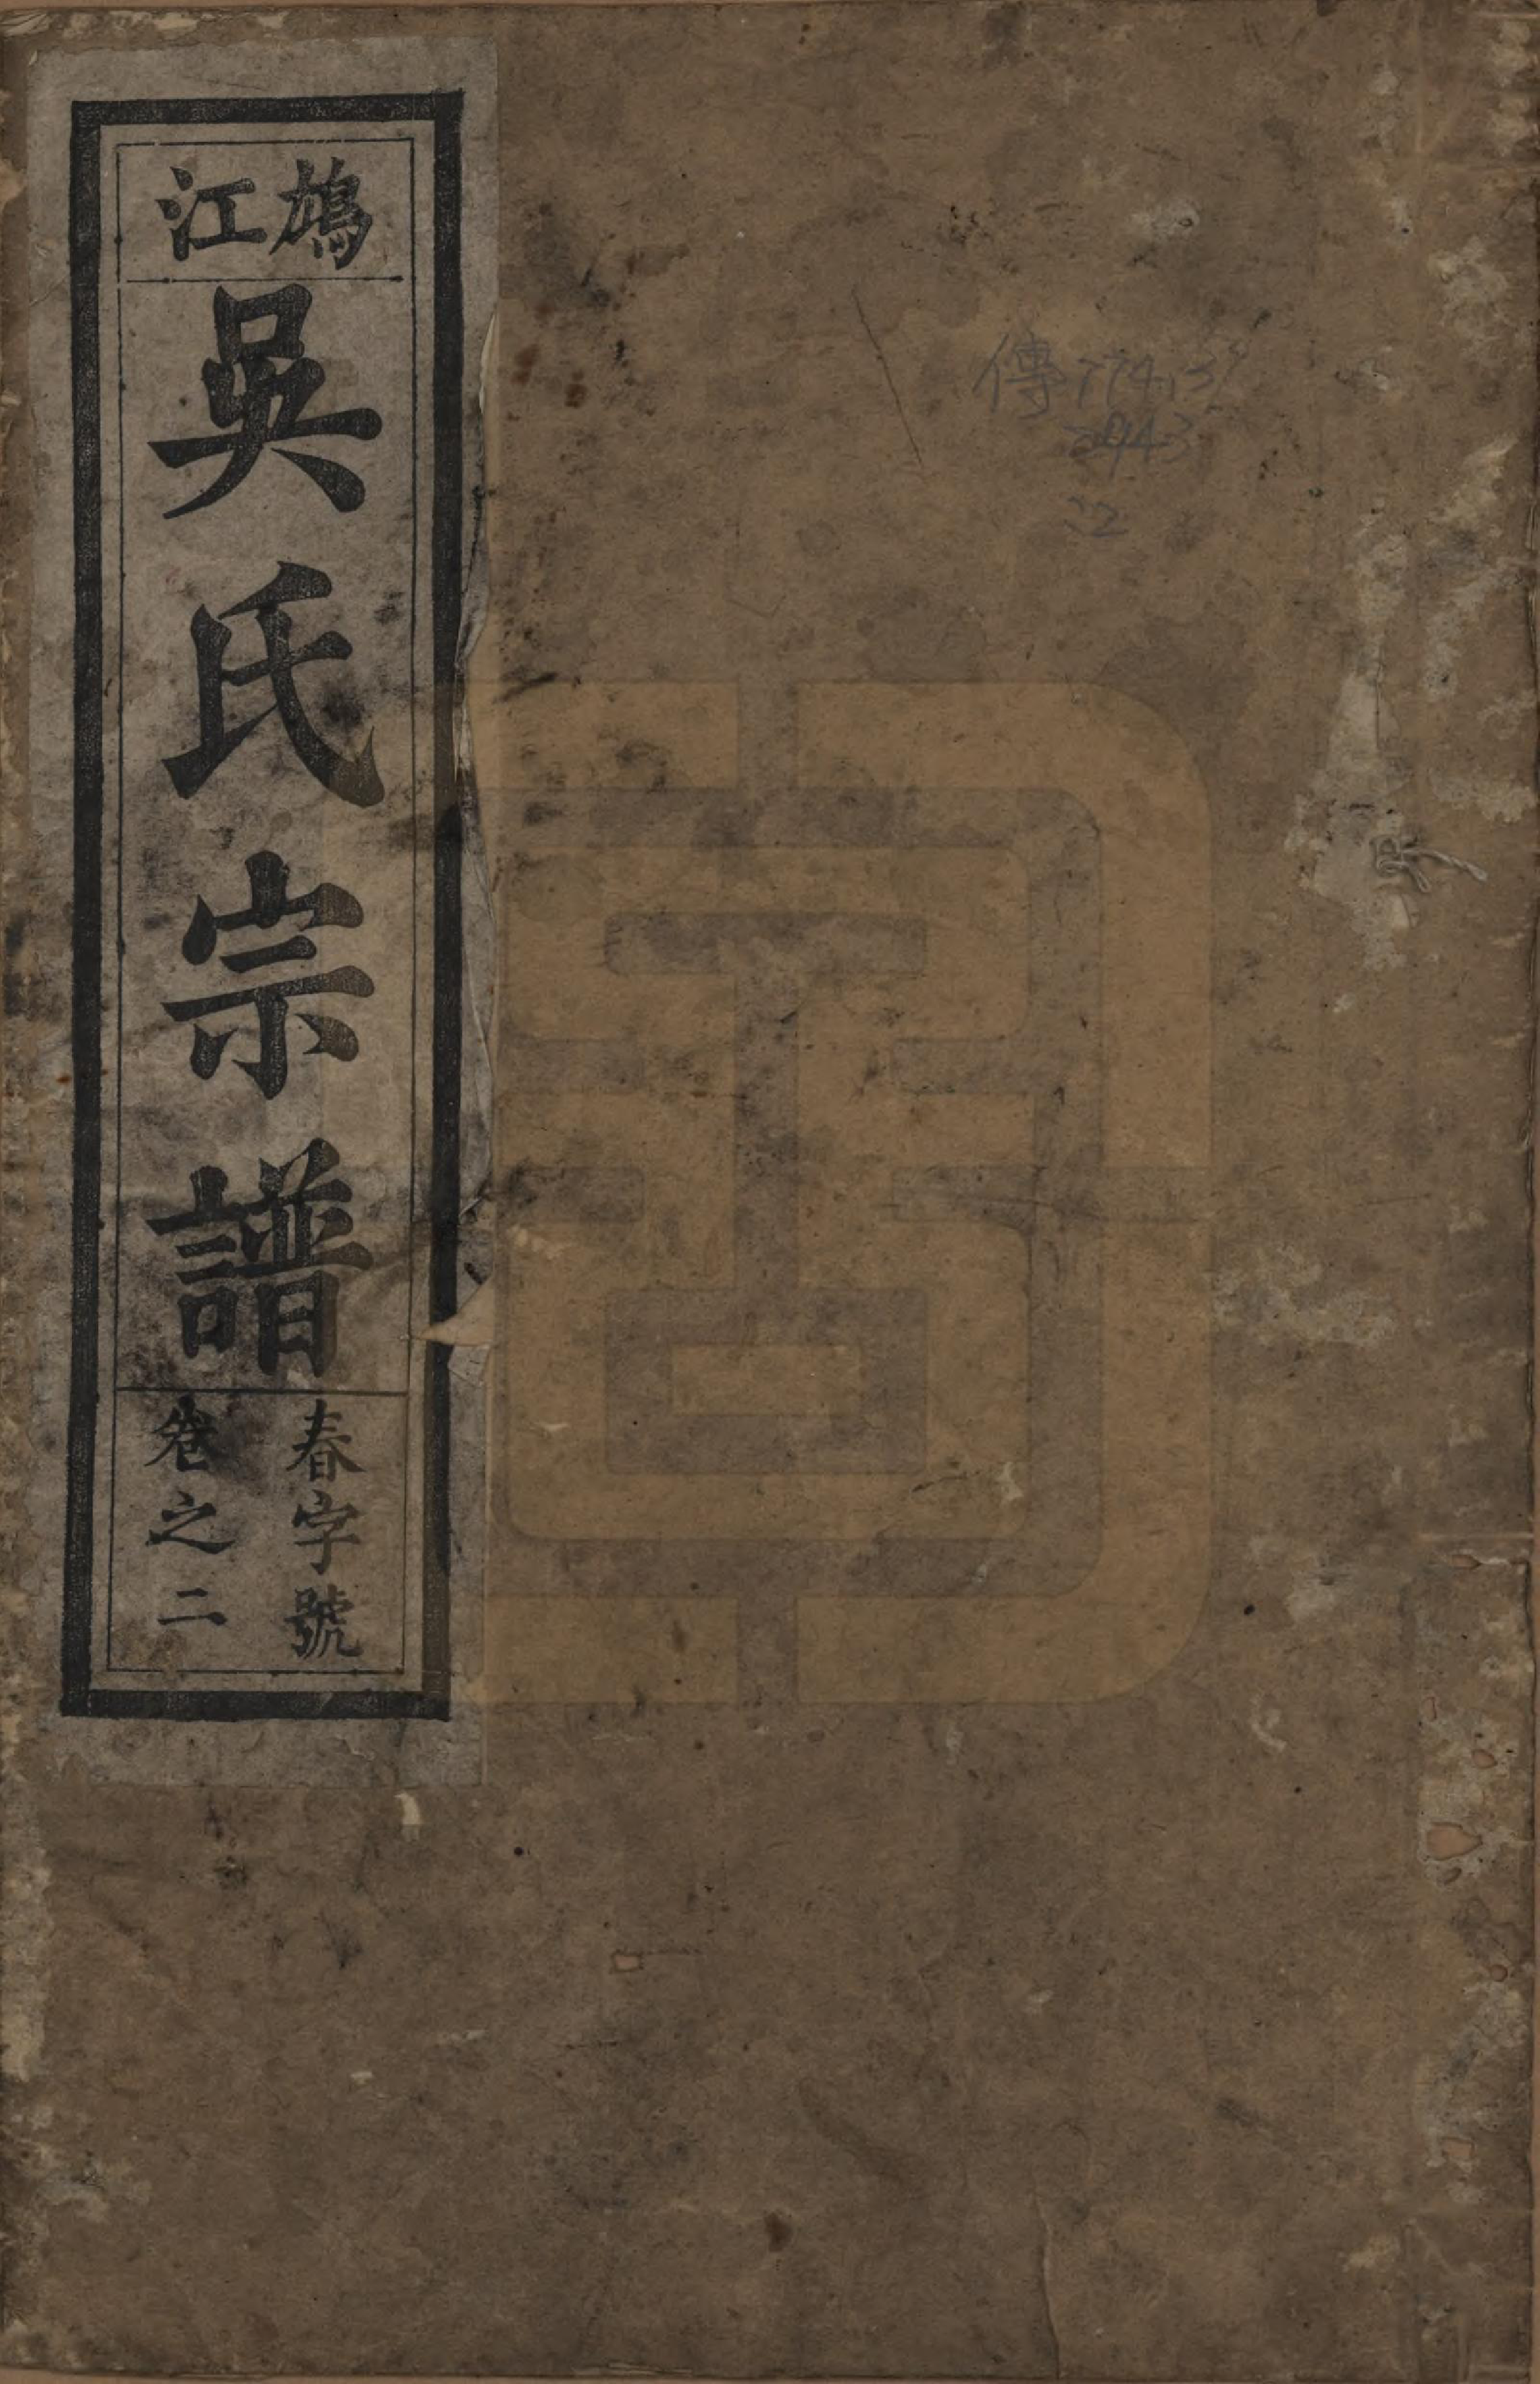 鳩江
吳氏宗譜
春字號
卷之二
傳774.13
2943